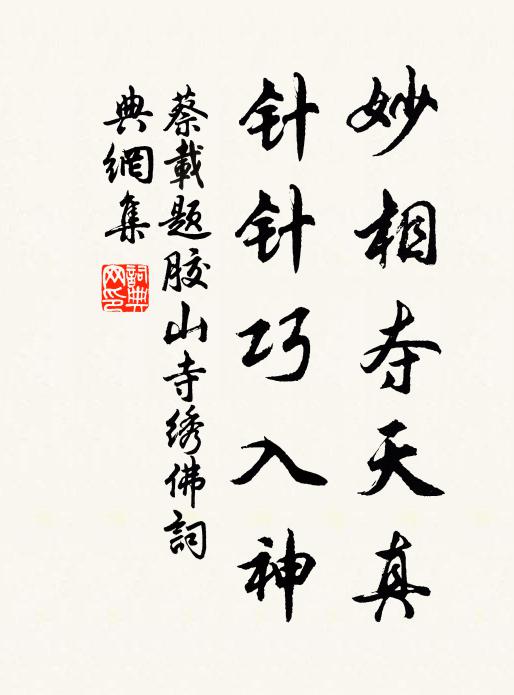 妙相夺天真
针针巧入神
蔡載題胶山寺绣佛詞
典網集
詞典网印